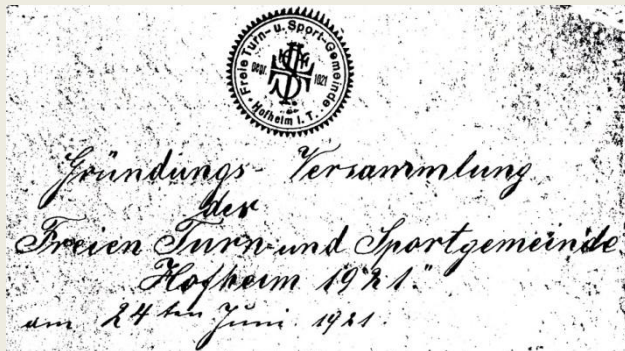 Freie Turn- u. Sport-Gemeinde
Gegr. 1921
Hofheim i. T.
Gründungs-Versammlung
der
Freien Turn- und Sportgemeinde
Hofheim 1921."
am 24ten Juni 1921.